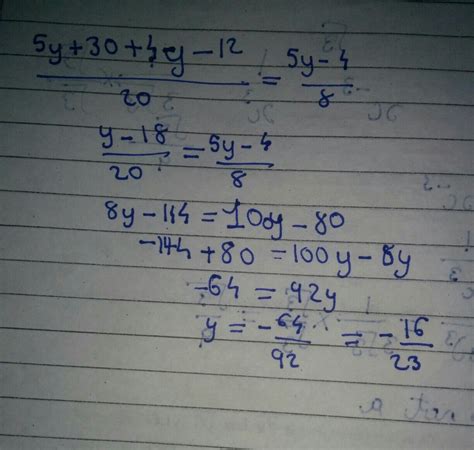 (5y+30+4y-12)/20 = (5y-4)/8
(y-18)/20 = (5y-4)/8
8y-144 = 100y-80
-144+80 = 100y-8y
-64 = 92y
y = -64/92 = -16/23